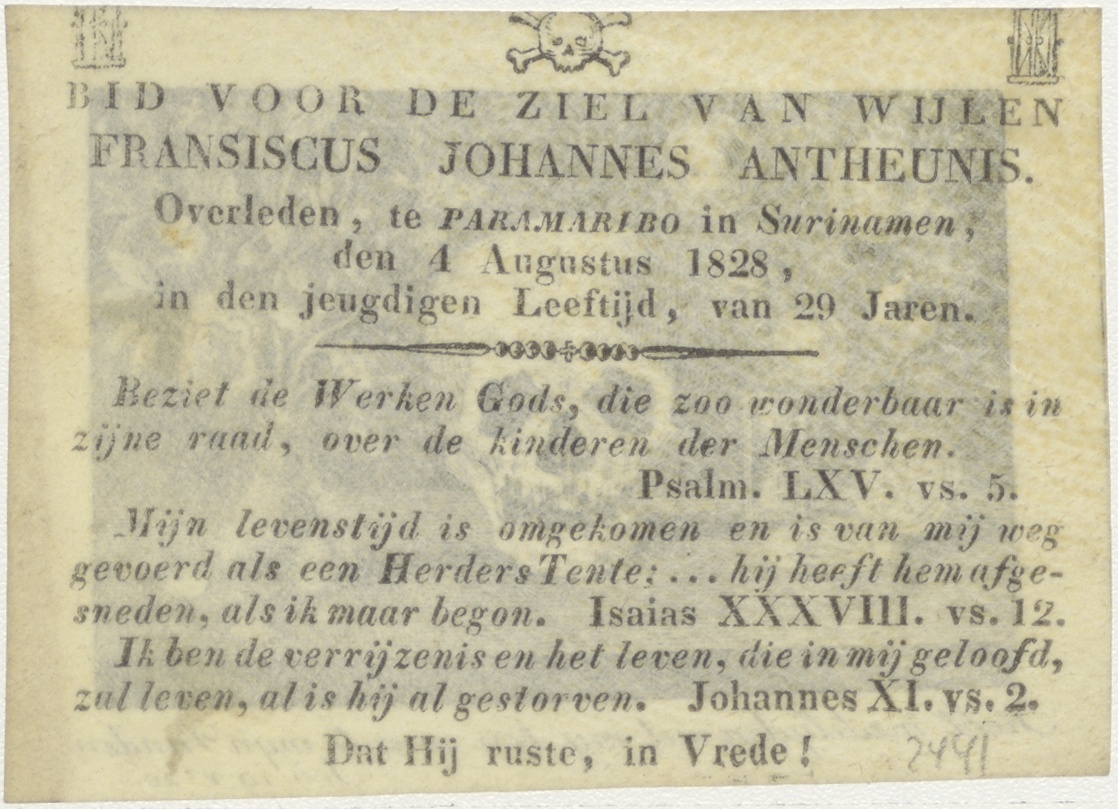 BID VOOR DE ZIEL VAN WIJLEN
FRANSISCUS JOHANNES ANTHEUNIS.
Overleden, te PARAMARIBO in Surinamen,
den 4 Augustus 1828,
in den jeugdigen Leeftijd, van 29 Jaren.
Beziet de Werken Gods, die zoo wonderbaar is in
zijne raad, over de kinderen der Menschen.
Psalm. LXV. vs. 5.
Mijn levenstijd is omgekomen en is van mij weg
gevoerd als een Herders Tente: ... hij heeft hem afge-
sneden, als ik maar begon. Isaias XXXVIII. vs. 12.
Ik ben de verrijzenis en het leven, die in mij geloofd,
zal leven, al is hij al gestorven. Johannes XI. vs. 2.
Dat Hij ruste, in Vrede! 2441